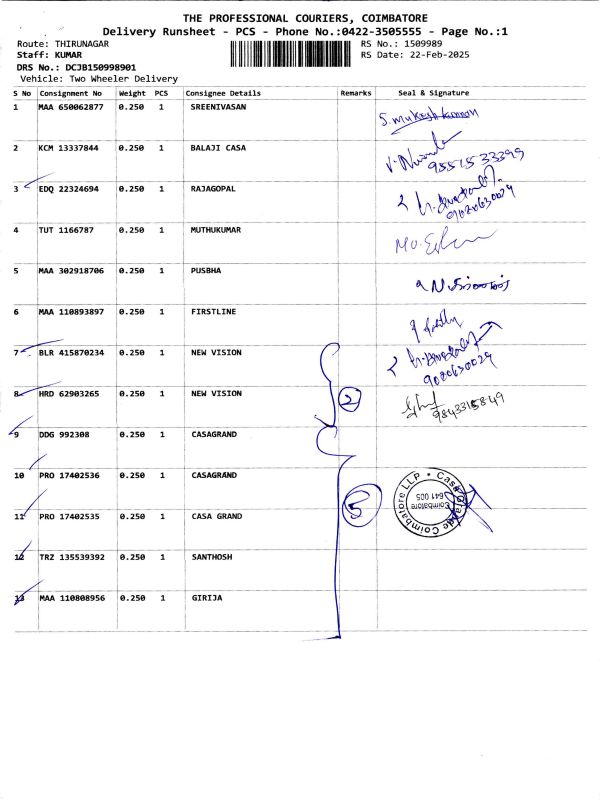 THE PROFESSIONAL COURIERS, COIMBATORE
Delivery Runsheet - PCS - Phone No.:0422-3505555 - Page No.:1
Route: THIRUNAGAR RS No.: 1509989
Staff: KUMAR RS Date: 22-Feb-2025
DRS No.: DCJB150998901
Vehicle: Two Wheeler Delivery
S No Consignment No Weight PCS Consignee Details Remarks Seal & Signature
1 MAA 650062877 0.250 1 SREENIVASAN S. Mukesh kannan
2 KCM 13337844 0.250 1 BALAJI CASA
3 EDQ 22324694 0.250 1 RAJAGOPAL
9080630029
4 TUT 1166787 0.250 1 MUTHUKUMAR
5 MAA 302918706 0.250 1 PUSBHA
6 MAA 110893897 0.250 1 FIRSTLINE
7 BLR 415870234 0.250 1 NEW VISION
9080630029
8 HRD 62903265 0.250 1 NEW VISION 2
9843315849
9 DDG 992308 0.250 1 CASAGRAND
10 PRO 17402536 0.250 1 CASAGRAND 5 Casa Grande Coimbatore LLP Coimbatore 641 005
11 PRO 17402535 0.250 1 CASA GRAND
12 TRZ 135539392 0.250 1 SANTHOSH
13 MAA 110808956 0.250 1 GIRIJA